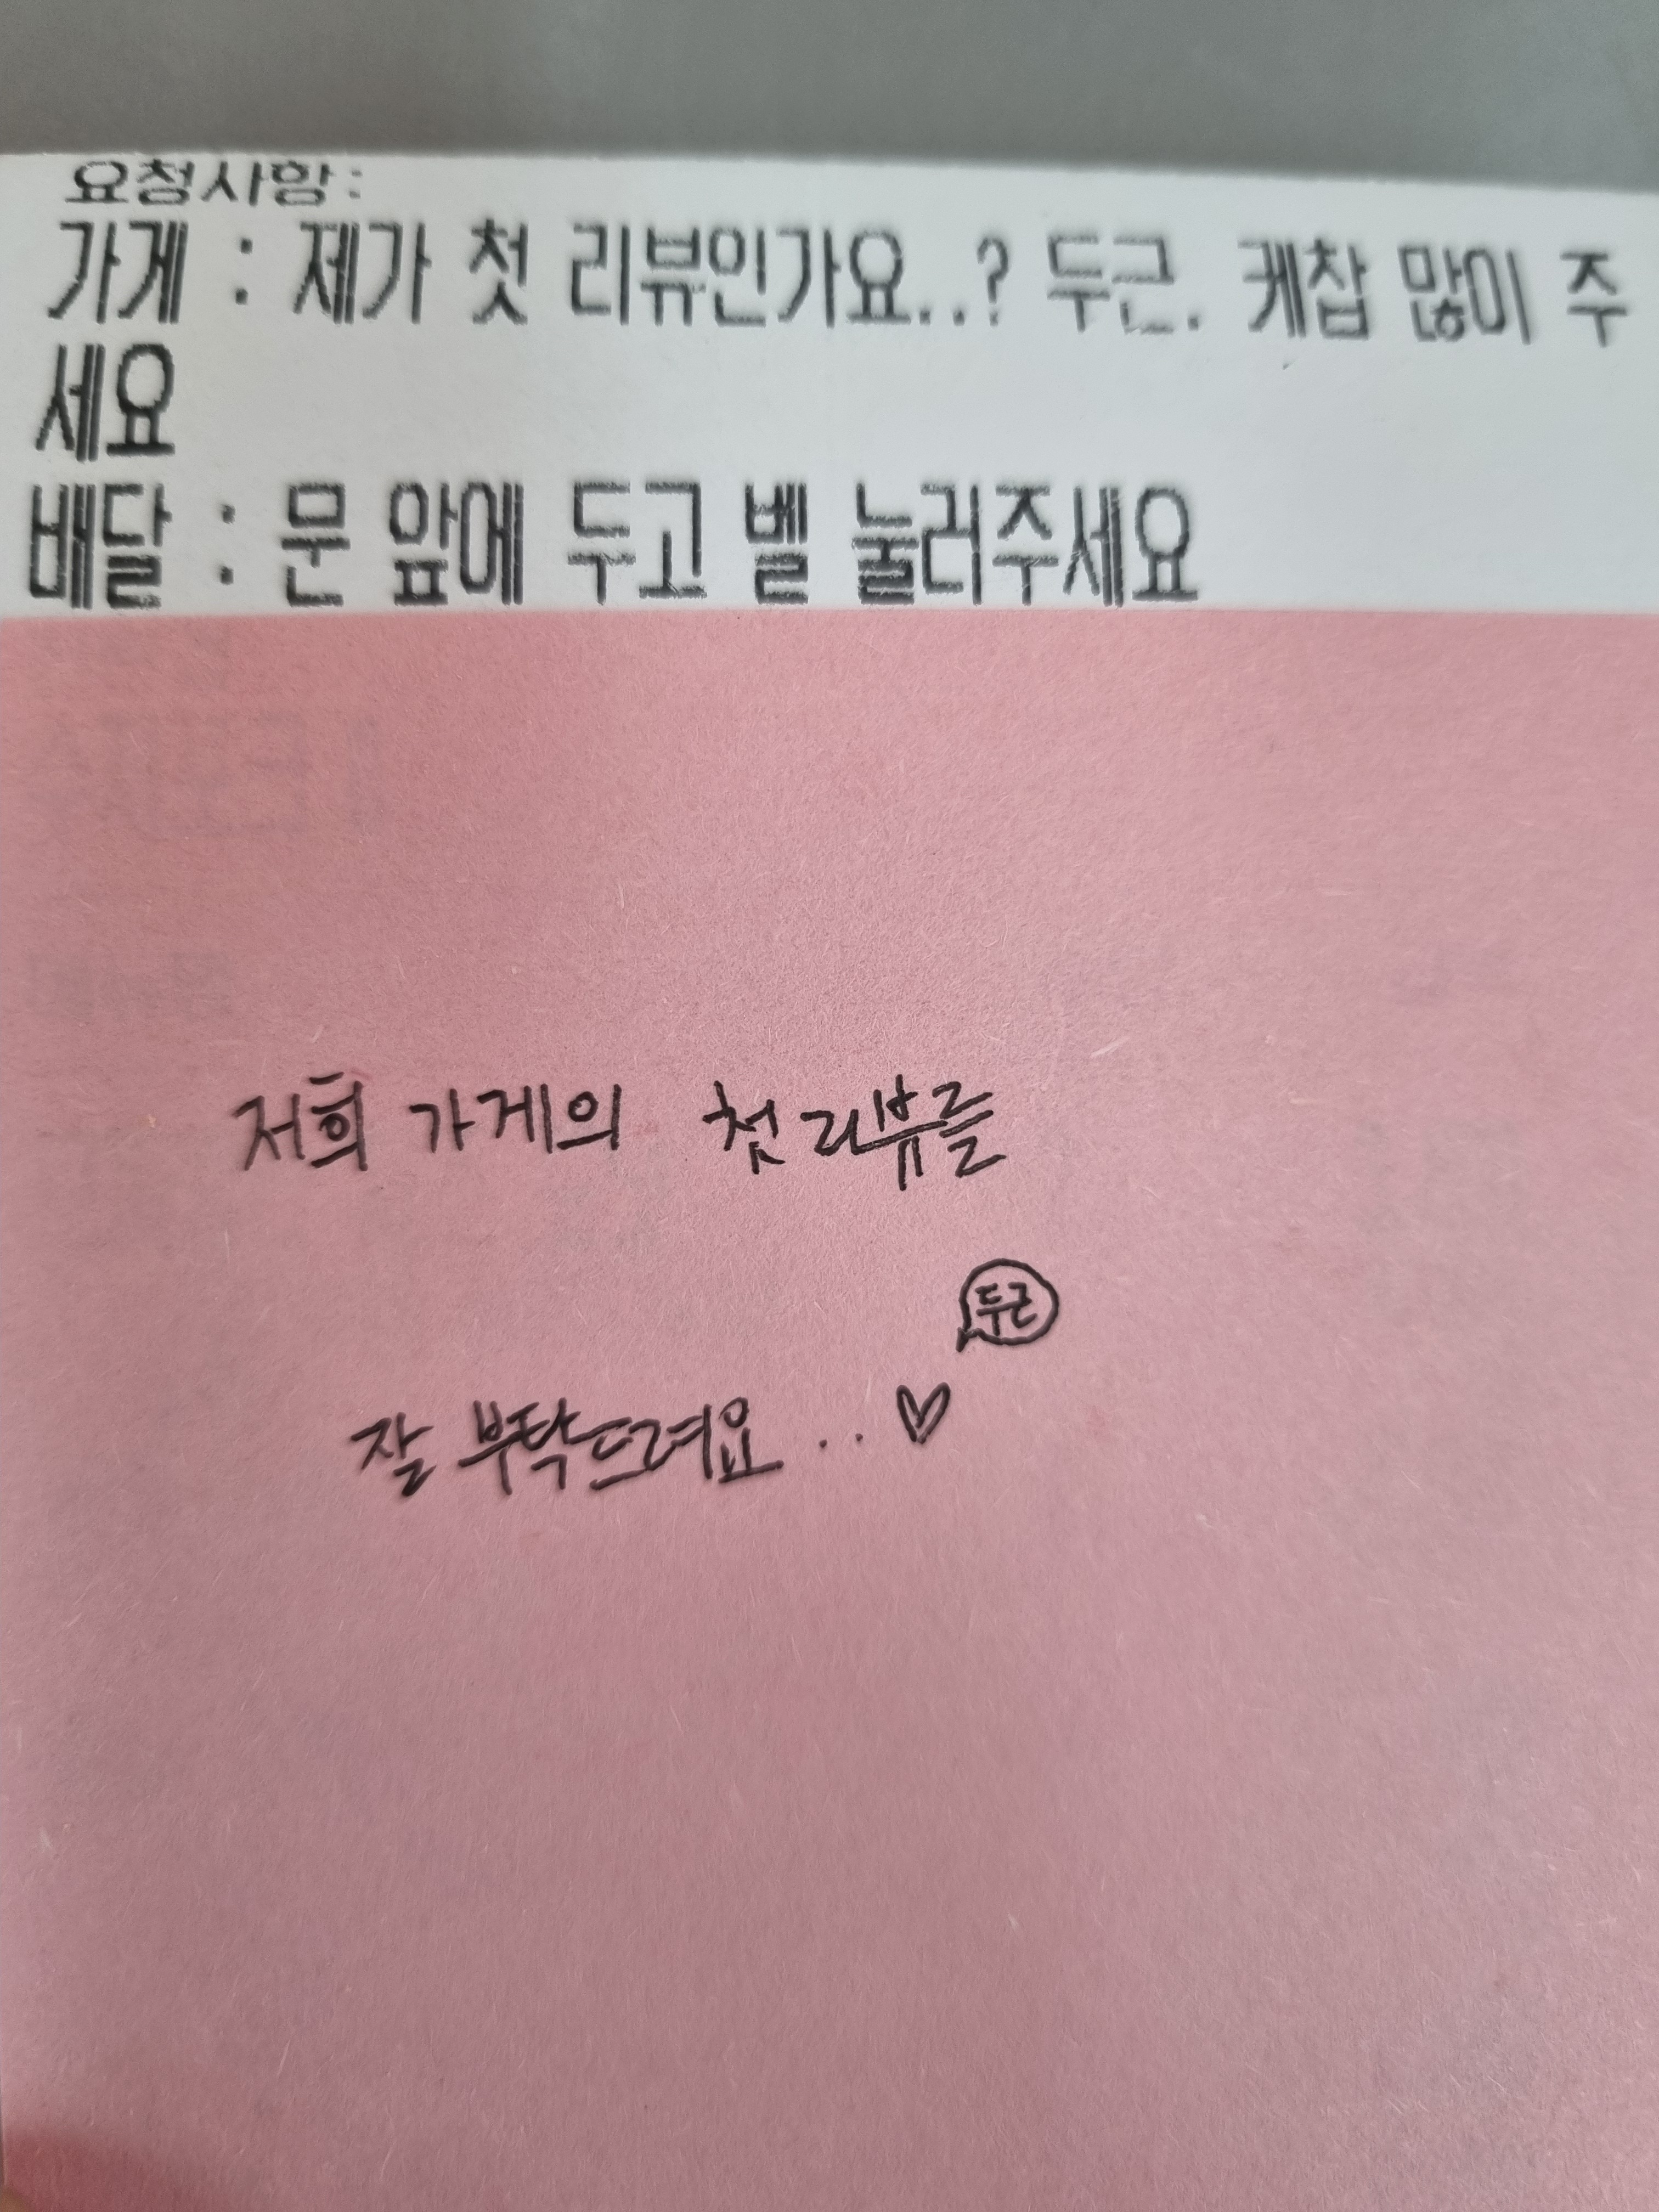 요청사항:
가게 : 제가 첫 리뷰인가요..? 두근. 케찹 많이 주
세요
배달 : 문 앞에 두고 벨 눌러주세요
저희 가게의 첫 리뷰를
두근
잘 부탁드려요..♡